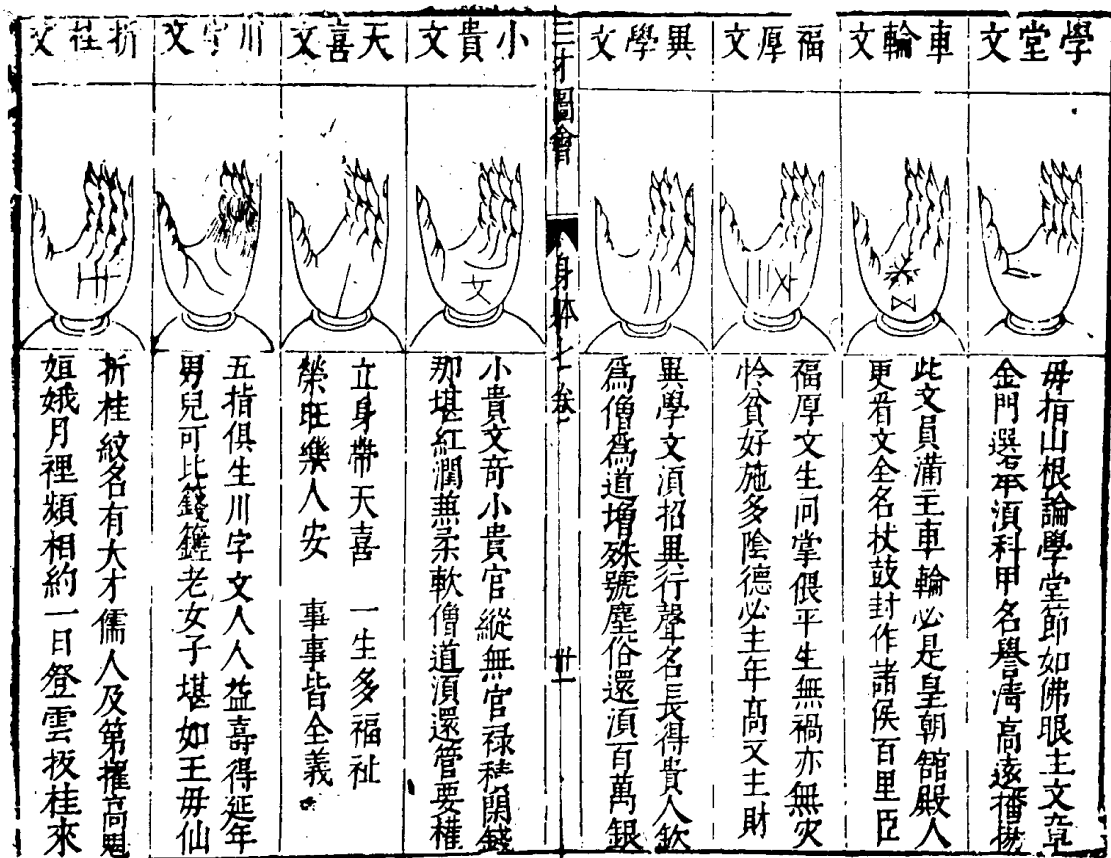 學堂文
毋指山根論學堂節如佛眼主文章
金門選舉須科甲名譽清高遠播揚
車輪文
此文員滿主車輪必是皇朝舘殿人
更看文全名杖鼓封作諸侯百里臣
福厚文
福厚文生向掌偎平生無禍亦無灾
怜貧好施多陰德必主年高又主財
異學文
異學文須招異行聲名長得貴人欽
爲僧爲道增殊號塵俗還須百萬銀
三才圖會
身体七卷
廿一
小貴文
小貴文竒小貴官縱無官禄積閑錢
那堪紅潤兼柔軟僧道須還管要權
天喜文
立身帶天喜 一生多福祉
榮旺樂人安 事事皆全義
川字文
五指俱生川字文人人益壽得延年
男兒可比籛鏗老女子堪如王毋仙
折桂文
折桂紋名有大才儒人及第擢高魁
姮娥月裡頻相約一日登雲扳桂來